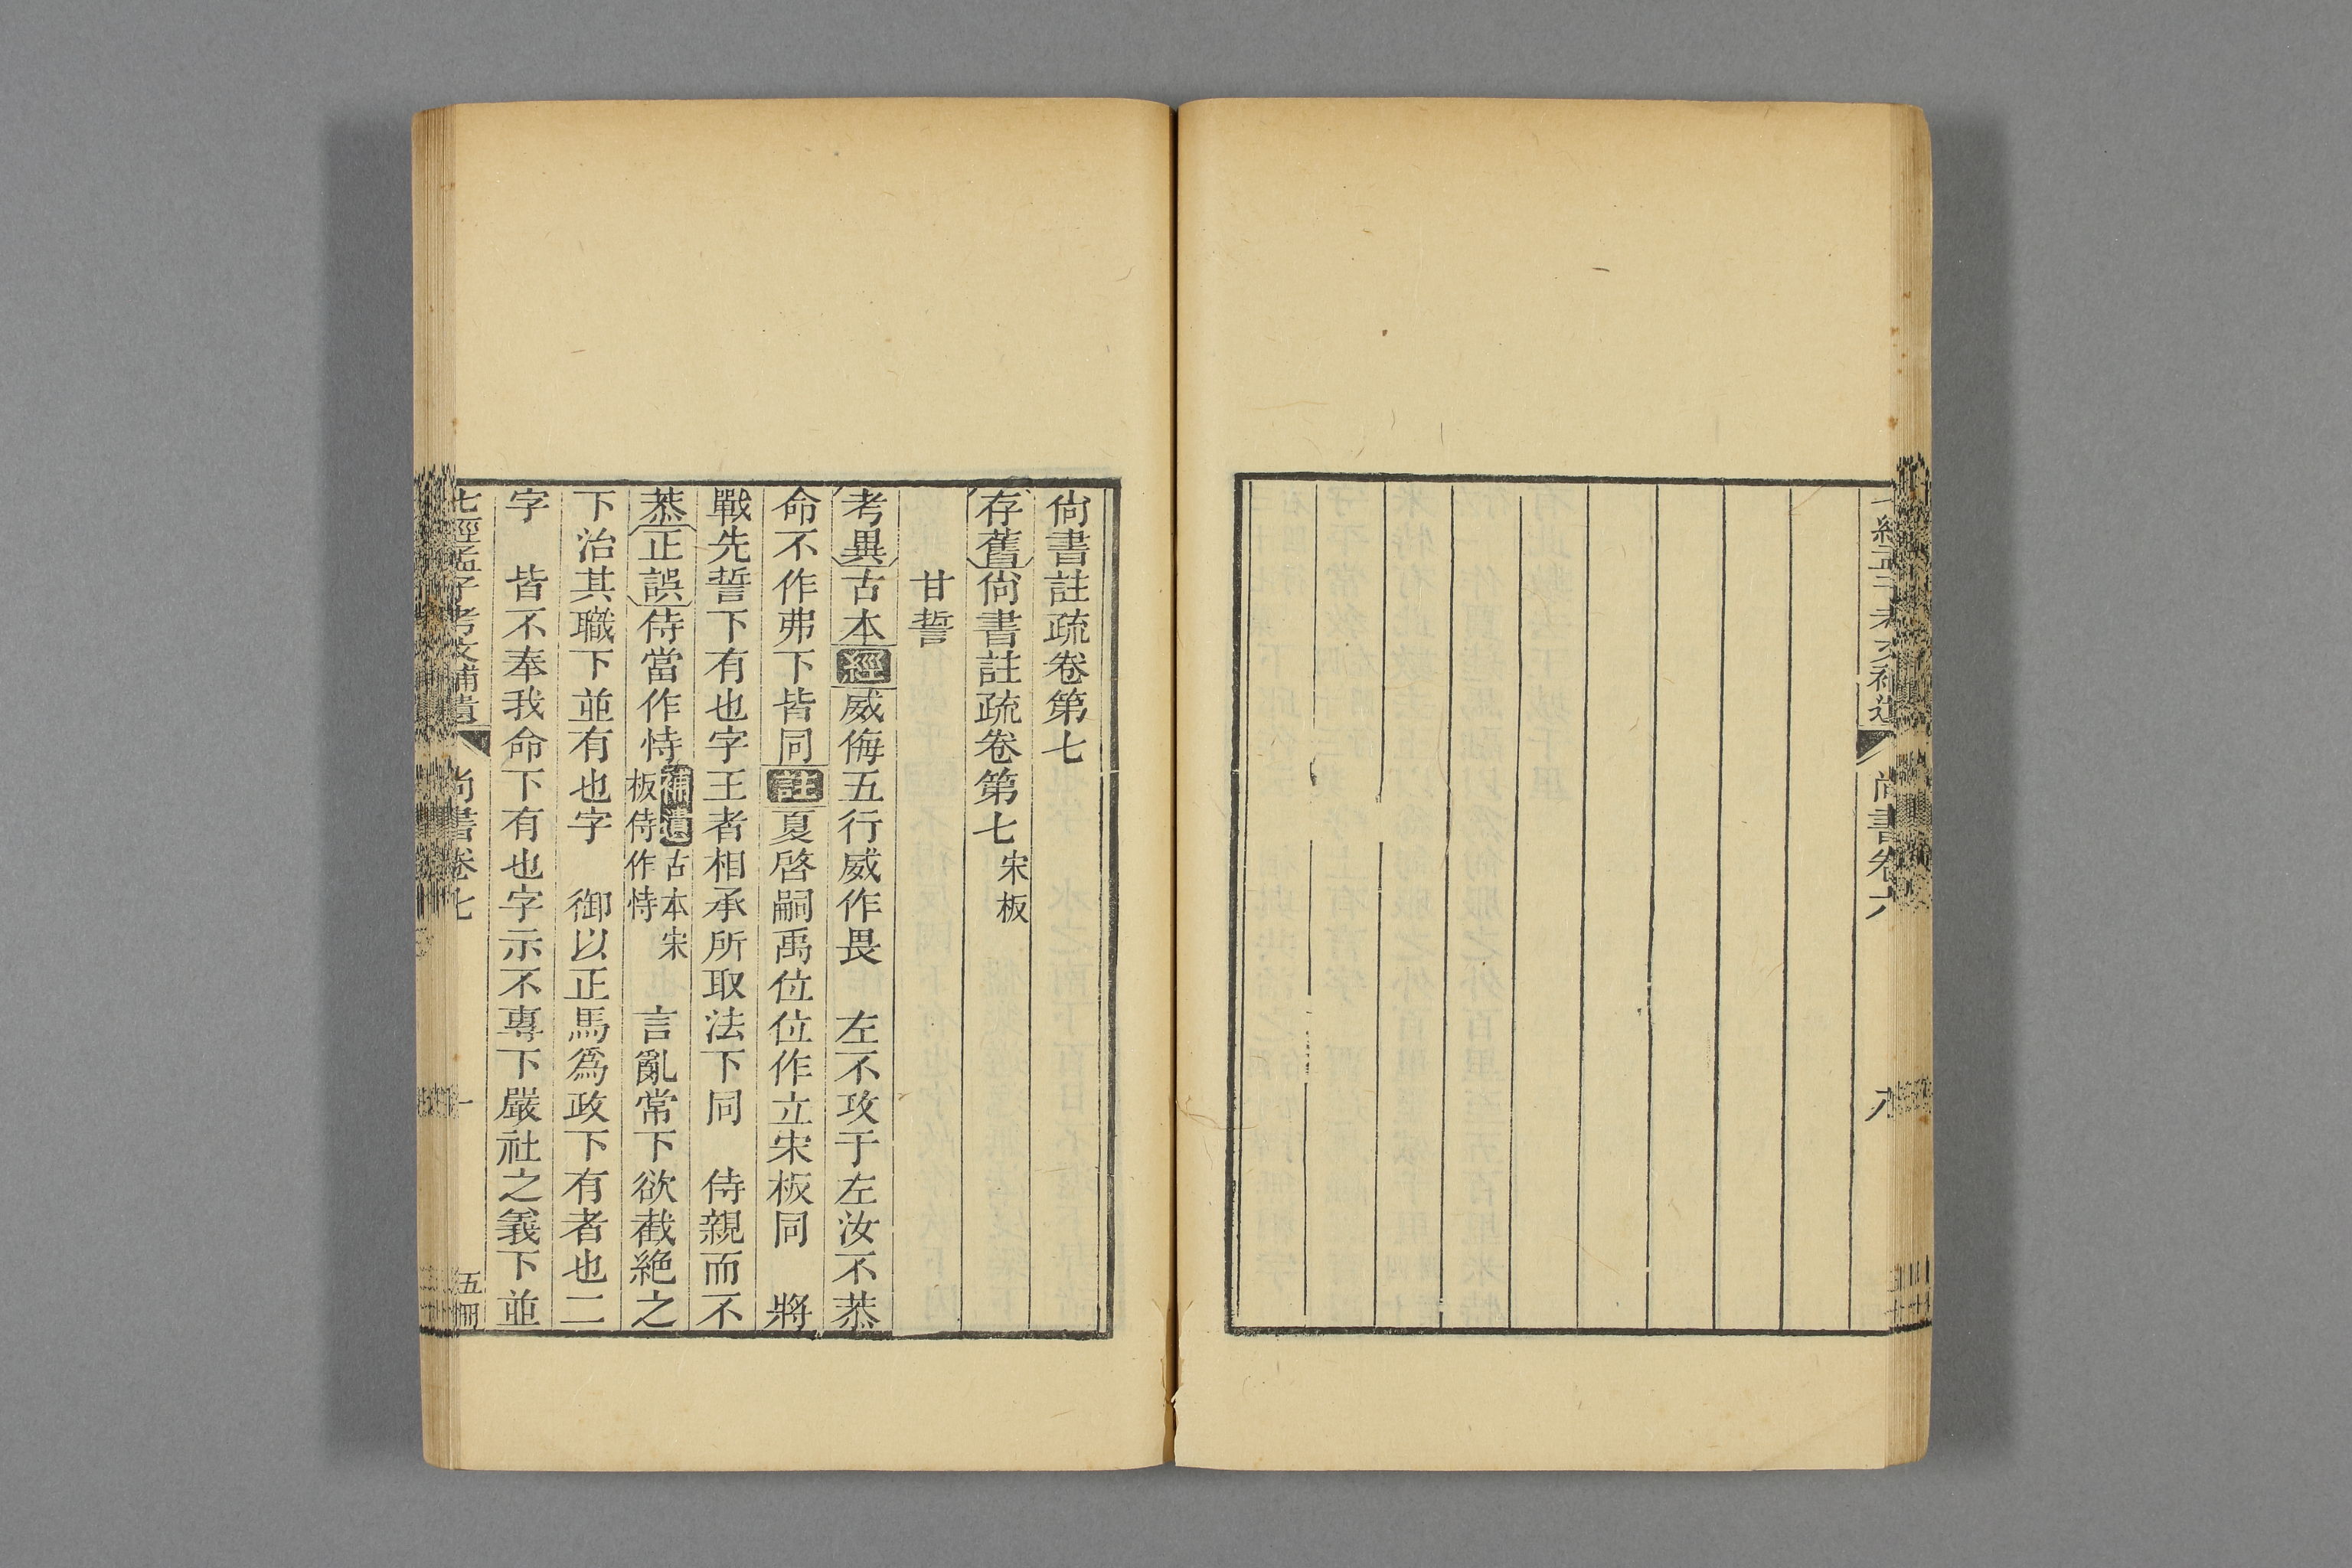 尚書卷六
尚書註疏卷第七
存舊尚書註疏卷第七宋板
甘誓
考異古本經威侮五行威作畏　左不攻于左汝不恭
命不作弗下皆同註夏啓嗣禹位位作立宋板同　將
戰先誓下有也字王者相承所取法下同　侍親而不
恭正誤侍當作恃補遺古本宋板侍作恃　言亂常下欲截絶之
下治其職下並有也字　御以正馬爲政下有者也二
字　皆不奉我命下有也字示不專下嚴社之義下並
七經孟子考文補遺　尚書卷七　一　五冊